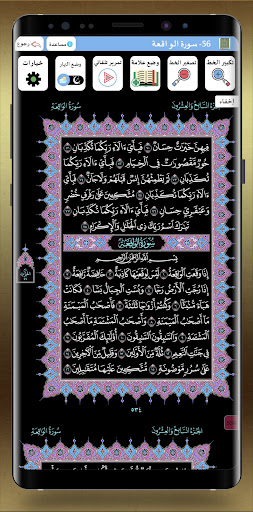 56- سورة الواقعة
مساعدة
رجوع
تكبير الخط
تصغير الخط
وضع علامة
تمرير تلقائي
وضع النهار
خيارات
إخفاء
الجزء السابع والعشرون
سورة الواقعة
فِيهِنَّ خَيْرَٰتٌ حِسَانٌ ٧٠ فَبِأَيِّ ءَالَآءِ رَبِّكُمَا تُكَذِّبَانِ ٧١
حُورٌ مَّقْصُورَٰتٌ فِي ٱلْخِيَامِ ٧٢ فَبِأَيِّ ءَالَآءِ رَبِّكُمَا
تُكَذِّبَانِ ٧٣ لَمْ يَطْمِثْهُنَّ إِنسٌ قَبْلَهُمْ وَلَا جَآنٌّ ٧٤ فَبِأَيِّ
ءَالَآءِ رَبِّكُمَا تُكَذِّبَانِ ٧٥ مُتَّكِـِٔينَ عَلَىٰ رَفْرَفٍ خُضْرٍ
وَعَبْقَرِيٍّ حِسَانٍ ٧٦ فَبِأَيِّ ءَالَآءِ رَبِّكُمَا تُكَذِّبَانِ ٧٧
تَبَٰرَكَ ٱسْمُ رَبِّكَ ذِي ٱلْجَلَٰلِ وَٱلْإِكْرَامِ ٧٨
سُورَةُ الْوَاقِعَةِ
بِسْمِ ٱللَّهِ ٱلرَّحْمَٰنِ ٱلرَّحِيمِ
إِذَا وَقَعَتِ ٱلْوَاقِعَةُ ١ لَيْسَ لِوَقْعَتِهَا كَاذِبَةٌ ٢ خَافِضَةٌ رَّافِعَةٌ ٣
إِذَا رُجَّتِ ٱلْأَرْضُ رَجًّا ٤ وَبُسَّتِ ٱلْجِبَالُ بَسًّا ٥ فَكَانَتْ
هَبَآءً مُّنۢبَثًّا ٦ وَكُنتُمْ أَزْوَٰجًا ثَلَٰثَةً ٧ فَأَصْحَٰبُ ٱلْمَيْمَنَةِ
مَآ أَصْحَٰبُ ٱلْمَيْمَنَةِ ٨ وَأَصْحَٰبُ ٱلْمَشْـَٔمَةِ مَآ أَصْحَٰبُ
ٱلْمَشْـَٔمَةِ ٩ وَٱلسَّٰبِقُونَ ٱلسَّٰبِقُونَ ١٠ أُو۟لَٰٓئِكَ ٱلْمُقَرَّبُونَ ١١
فِي جَنَّٰتِ ٱلنَّعِيمِ ١٢ ثُلَّةٌ مِّنَ ٱلْأَوَّلِينَ ١٣ وَقَلِيلٌ مِّنَ ٱلْءَاخِرِينَ ١٤
عَلَىٰ سُرُرٍ مَّوْضُونَةٍ ١٥ مُّتَّكِـِٔينَ عَلَيْهَا مُتَقَٰبِلِينَ ١٦
٥٣٤
الجزء السابع والعشرون
سورة الواقعة